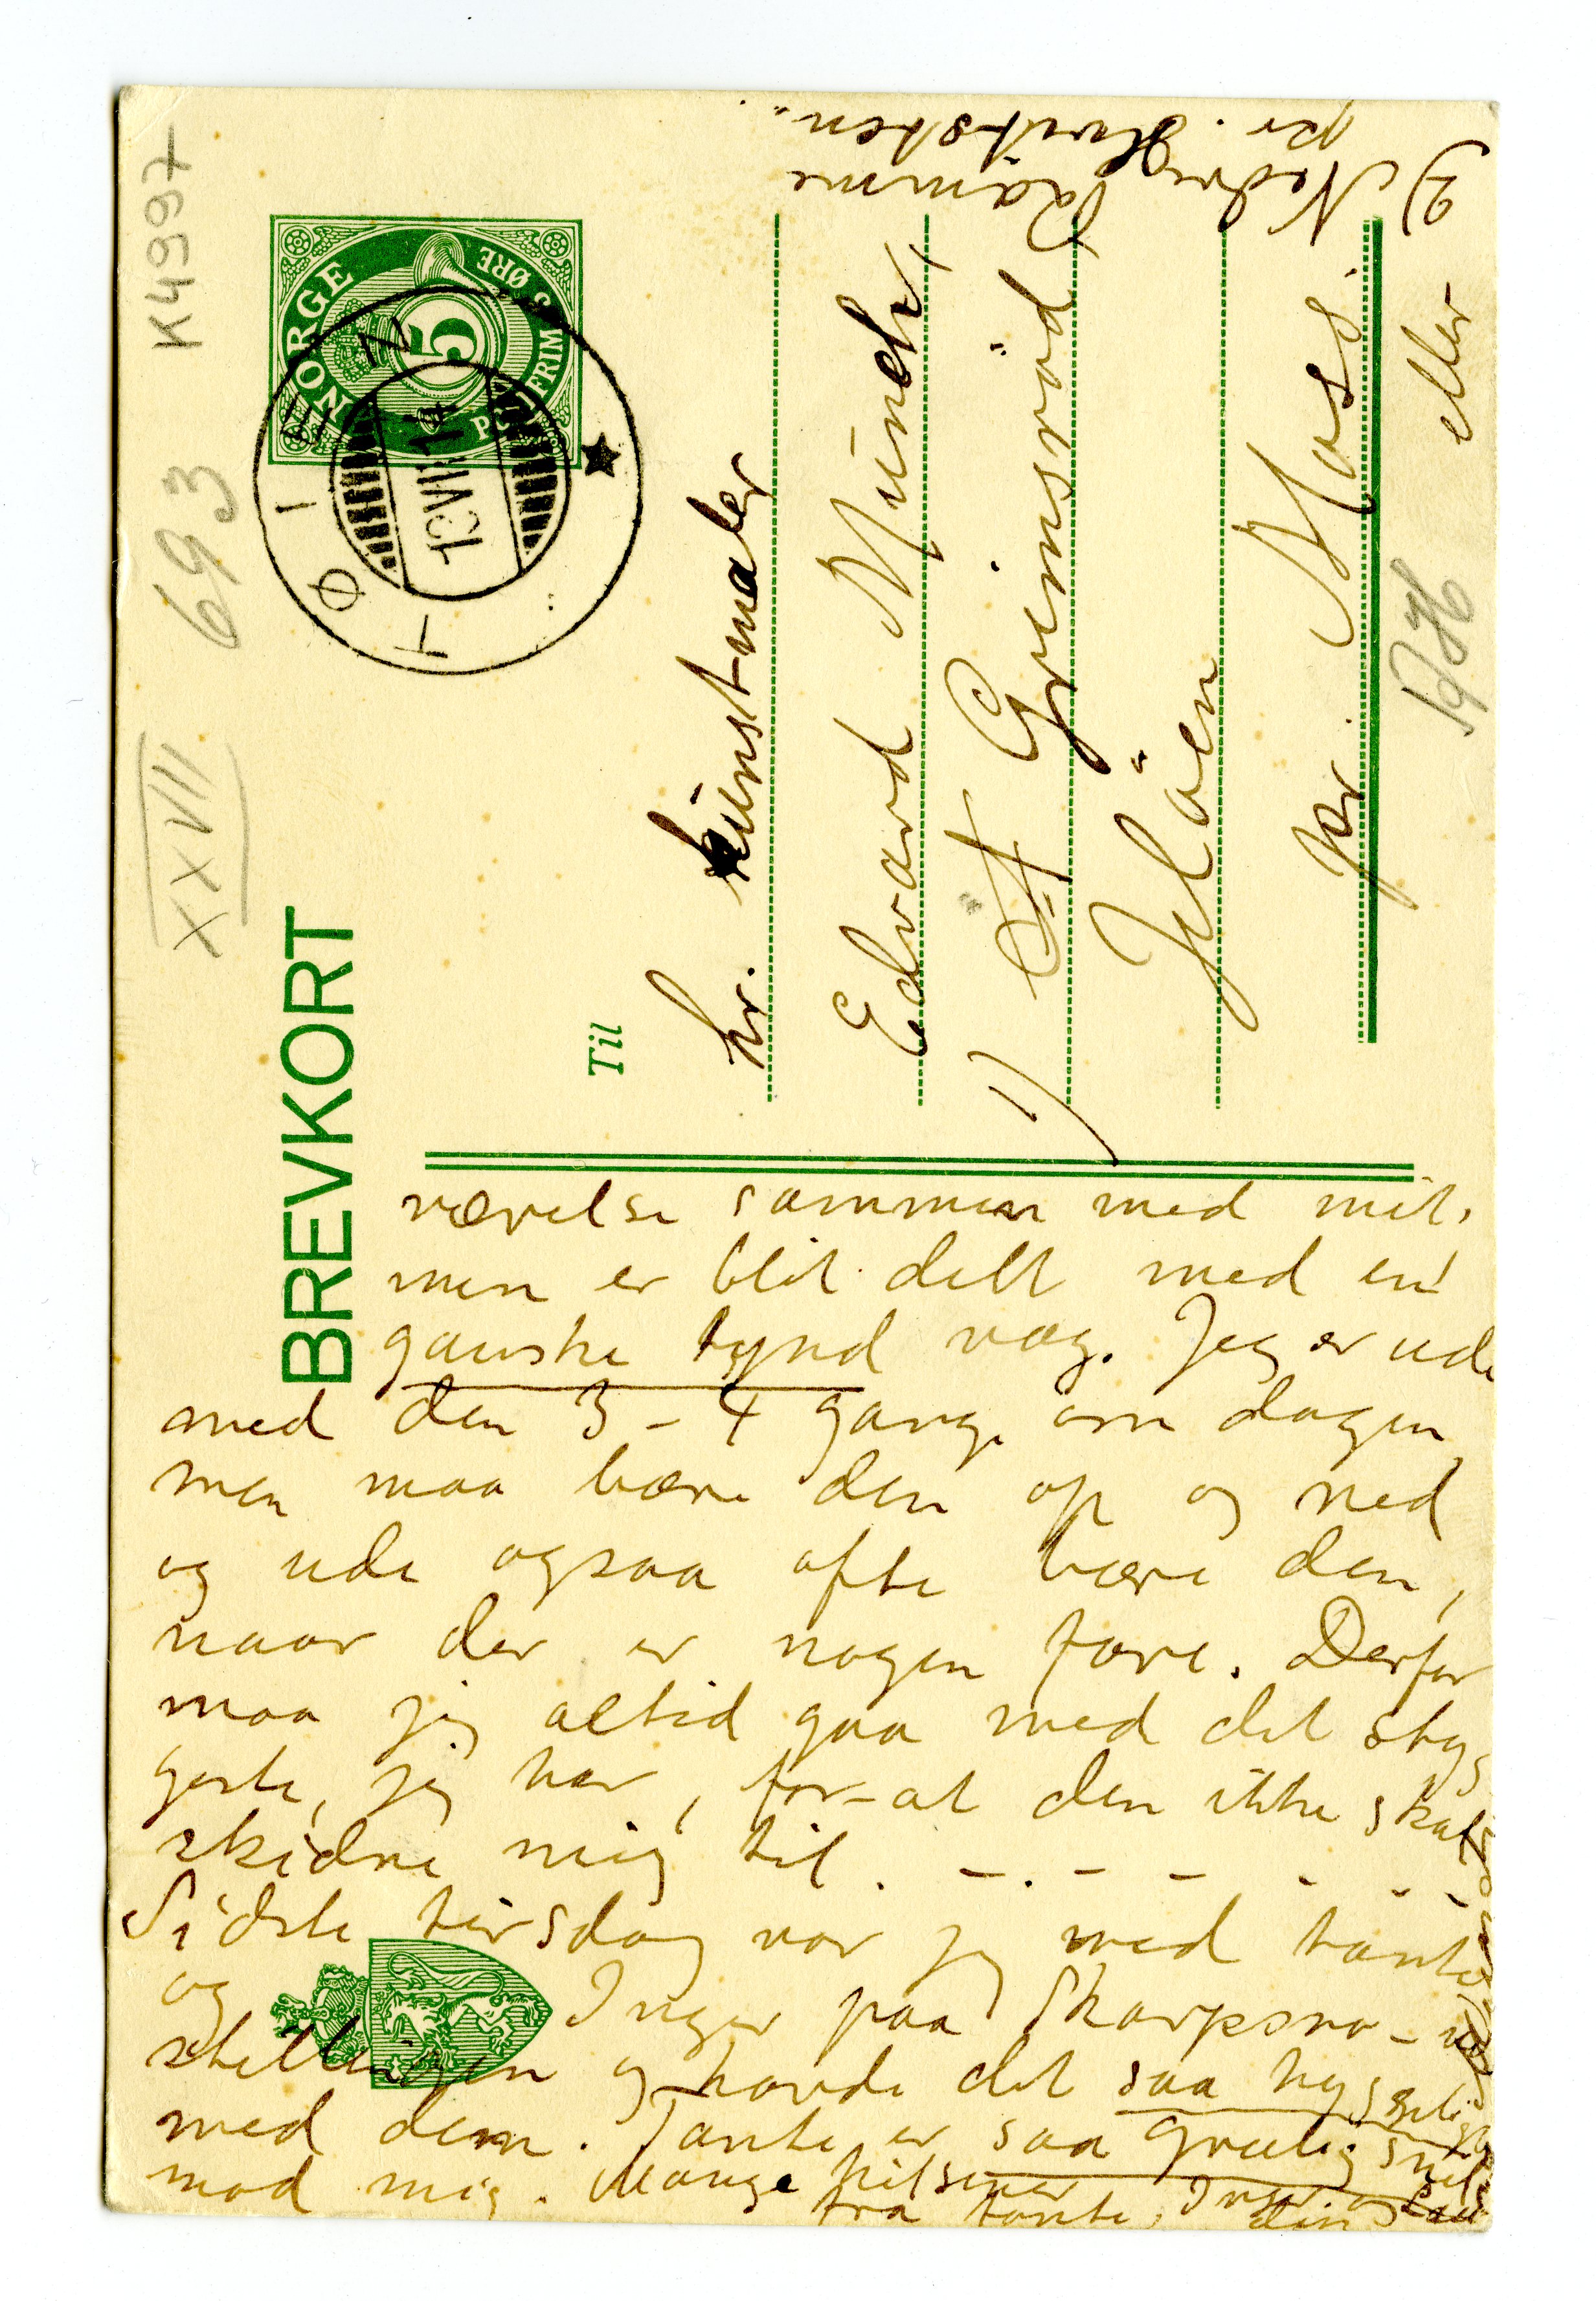 K4997
693
XXVII
BREVKORT
NORGE
5
POSTFRIM 5 ØRE
KØIEN
13 VII 14
Til
hr. kunstmaler
Edvard Munch,
1) Grimsröd
Jelöen
pr. Moss.
eller
2) Nedre Ramme
pr. Hvitsten.
værelse sammen med mit,
men er blit delt med en
ganske tynd væg. Jeg er ude
med den 3 - 4 gange om dagen
men maa bære den op og ned
og ude ogsaa ofte bære den,
naar der er nogen fare. Derfor
maa jeg altid gaa med det styg
geste, jeg har, for-at den ikke skal
skidne mig til. - . - - - - -
Sidste tirsdag var jeg med tante
og Inger paa Skarpsno-
stillingen og havde det saa hyggelig
med dem. Tante er saa grælig snil
mod mig. Mange hilsener
fra tante, Inger og
din